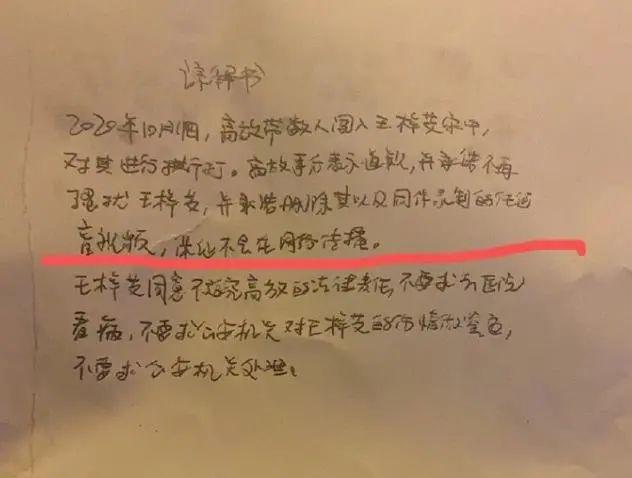 谅解书
2020年10月1日，高放带数人闯入王梓英家中，
对其进行拳打。高放事后表示道歉，并承诺不再
骚扰王梓英，并承诺删除其以及同伴录制的任何
音视频，保证不会在网络传播。
王梓英同意不追究高放的法律责任，不要求去医院
看病，不要求公安机关对王梓英的伤情做鉴定，
不要求公安机关处理。